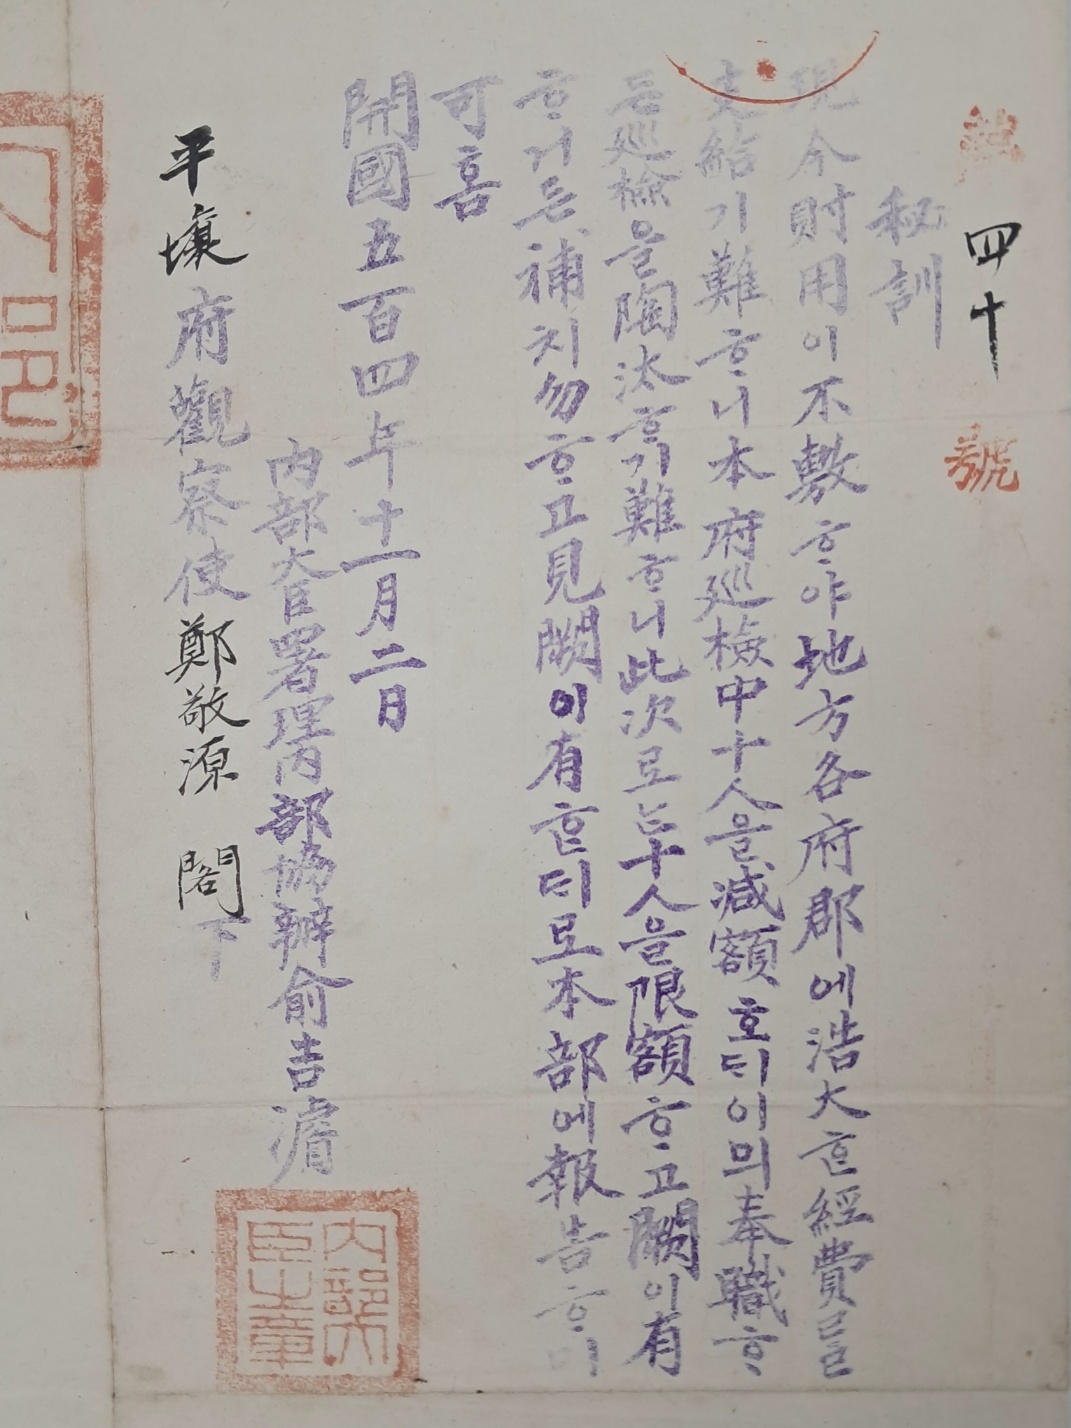 第四十號
秘訓
現今財用이不敷ᄒᆞ야地方各府郡에浩大ᄒᆞᆫ經費ᄅᆞᆯ
支給기難ᄒᆞ니本府巡檢中十人을減額호ᄃᆡ이믜奉職ᄒᆞ
ᄂᆞᆫ巡檢을陶汰ᄒᆞ기難ᄒᆞ니此次로ᄂᆞᆫ十人을限額ᄒᆞ고闕이有
ᄒᆞ거든補치勿ᄒᆞ고見闕이有ᄒᆞᆫᄃᆡ로本部에報告ᄒᆞ미
可홈
開國五百四年十一月二日
內部大臣署理內部協辦俞吉濬
平壤府觀察使鄭敬源 閣下
內部大臣之章